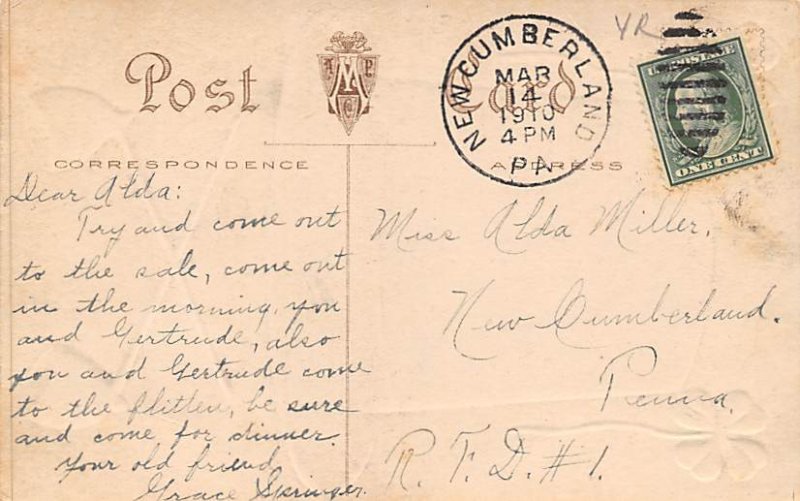 YR
Post Card
A M P C
NEW CUMBERLAND
MAR
14
1910
4 PM
PA
U.S. POSTAGE
ONE CENT
CORRESPONDENCE
ADDRESS
Dear Alda:
Try and come out
to the sale, come out
in the morning, you
and Gertrude, also
you and Gertrude come
to the flitten, be sure
and come for dinner.
Your old friend
Grace Springer.
Miss Alda Miller.
New Cumberland.
Penna.
R. F. D. #1.